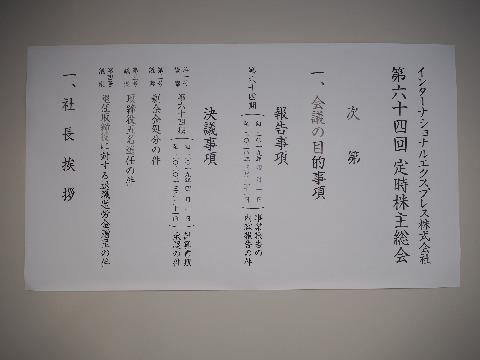 インターナショナルエクスプレス株式会社
第六十四回 定時株主総会
次 第
一、会議の目的事項
報告事項
第六十四期
事業報告の
内容報告の件
決議事項
第一号
議案
第六十四期
計算書類
承認の件
第二号
議案
剰余金処分の件
第三号
議案
取締役五名選任の件
第四号
議案
退任取締役に対する退職慰労金贈呈の件
一、社 長 挨 拶